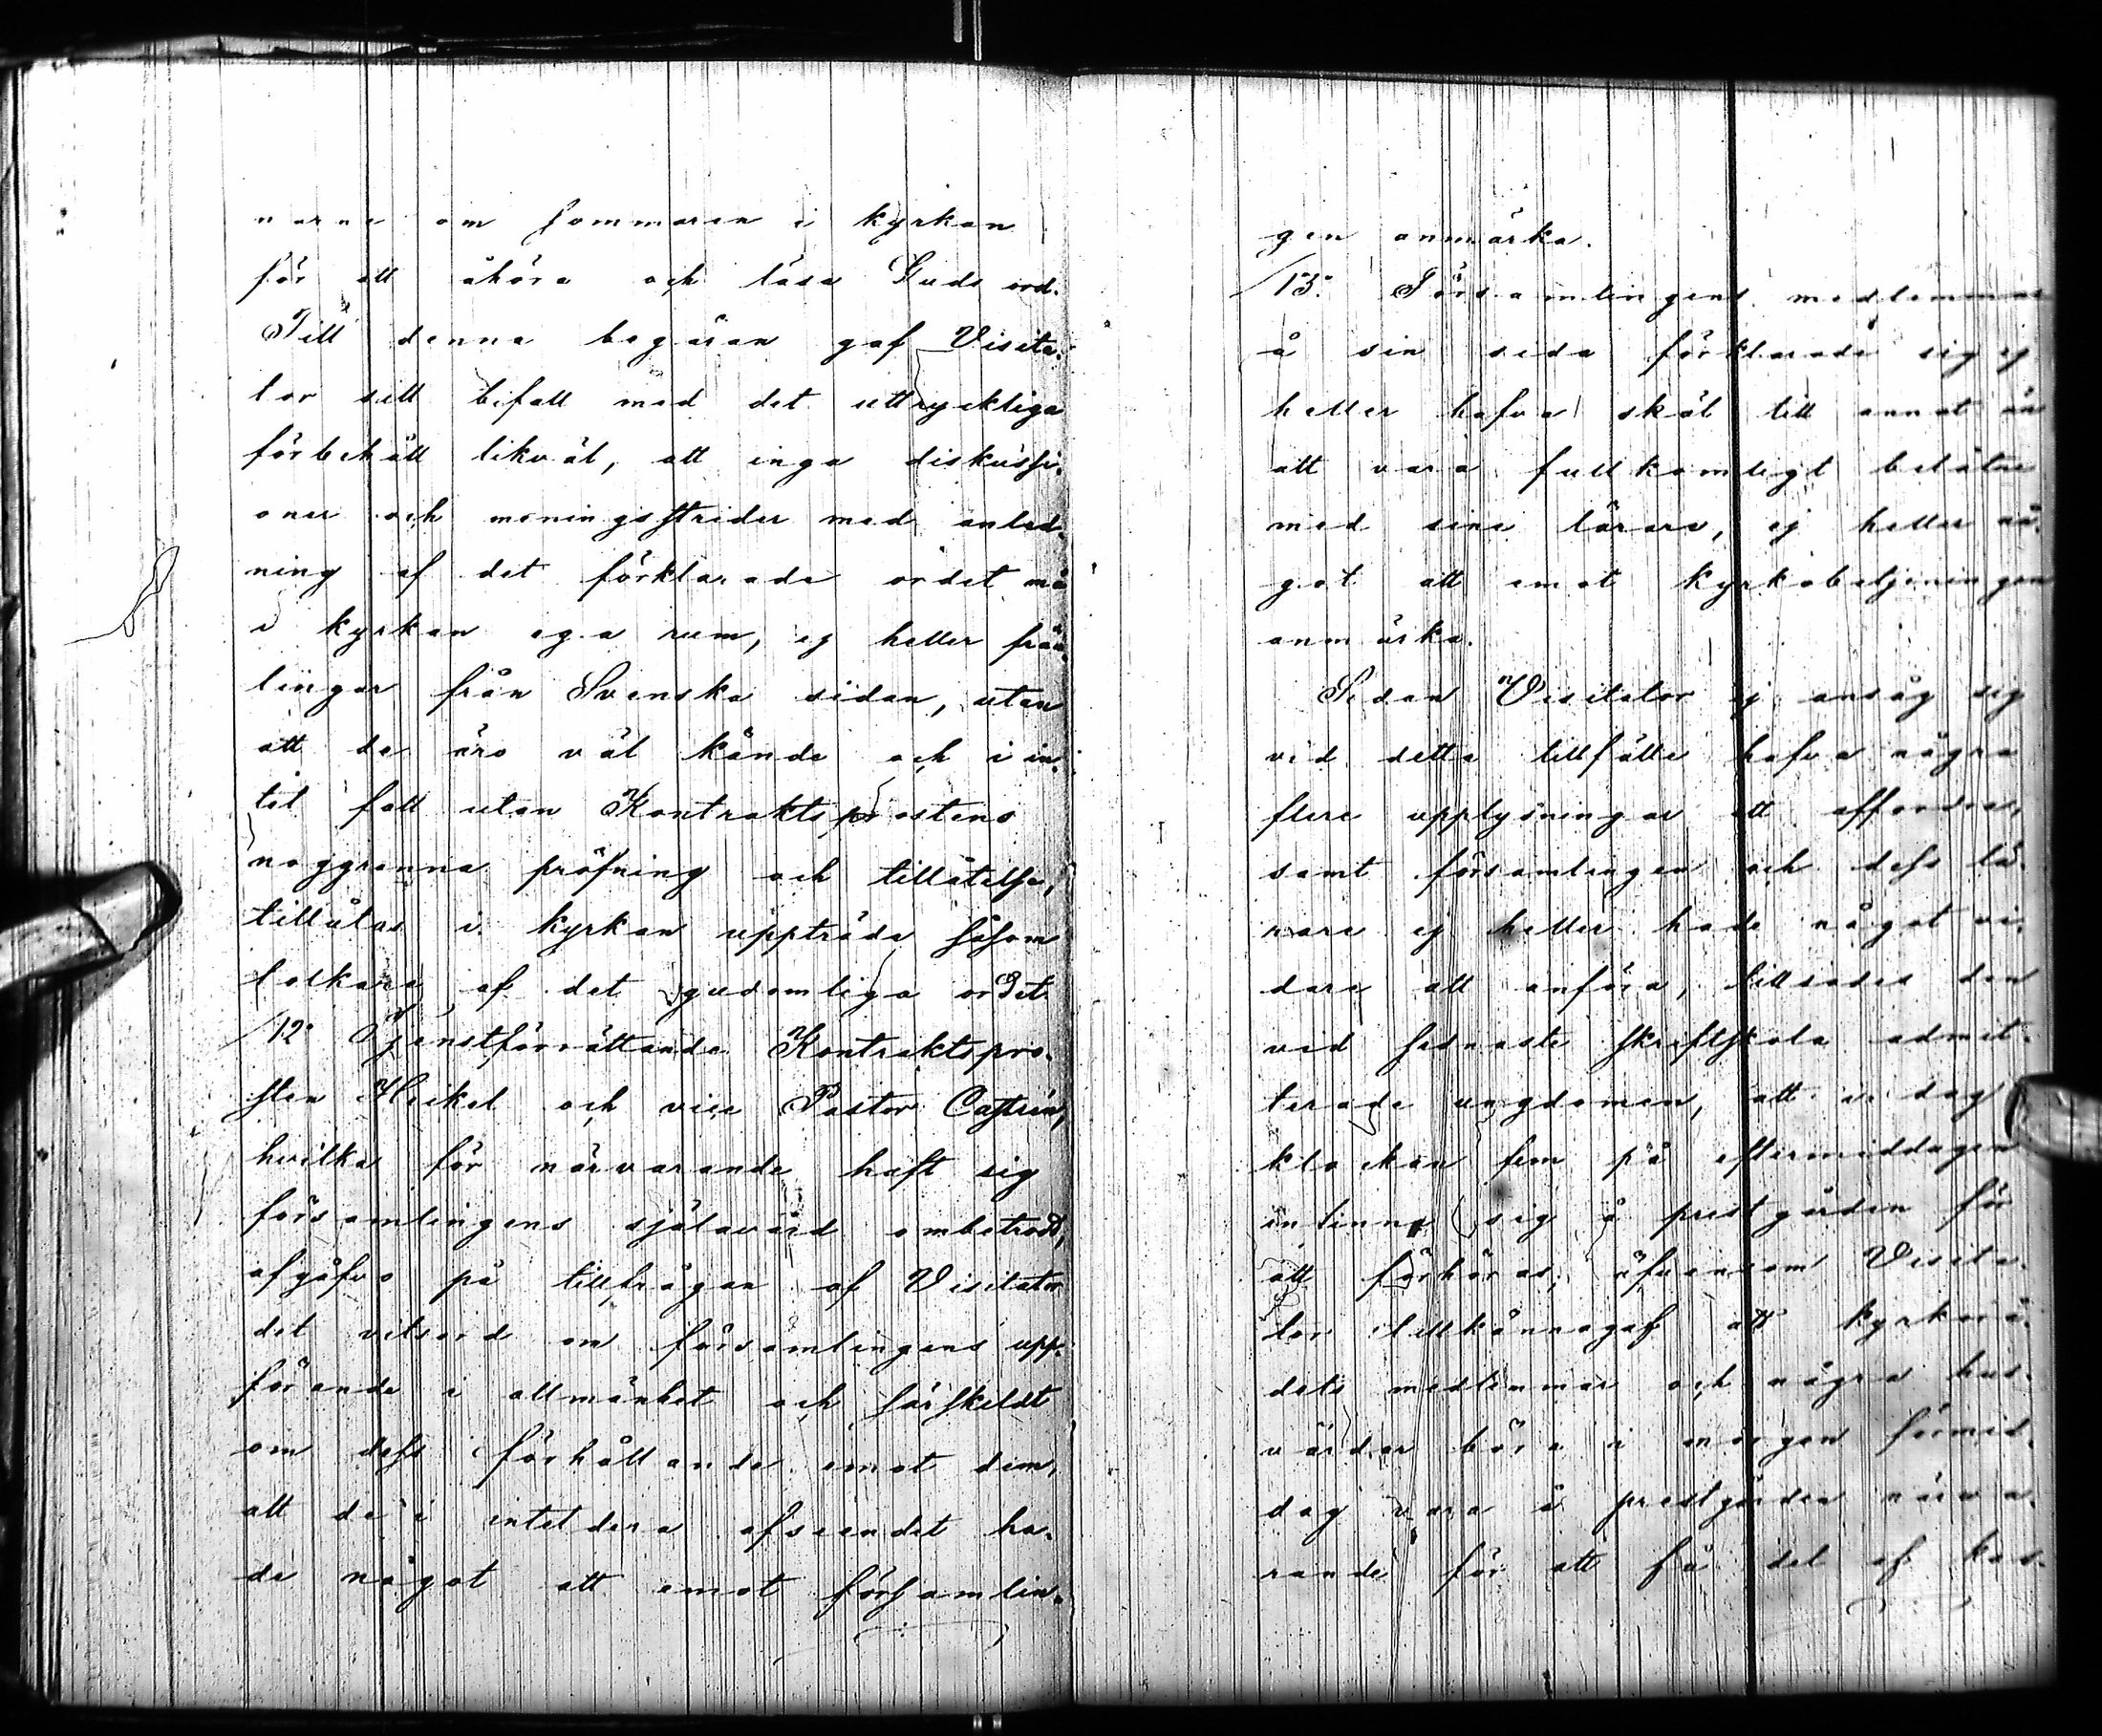 narne om sommaren i kyrkan
för att åhöra och läsa Guds ord.
Till denna begäran gaf Visita-
tor sitt bifall med det uttryckliga
förbehåll likväl, att inga diskussi-
oner och meningsstrider med anled-
ning af det förklarade ordet må
i kyrkan ega rum, ej heller främ-
lingar från Svenska sidan, utan
att de äro väl kände och i in-
tet fall utan Kontraktsprostens
noggranna pröfning och tillåtelse,
tillåtas i kyrkan uppträda såsom
tolkare af det gudomliga ordet.
12. Tjenstförrättande Kontraktspro-
sten Heikel och vice Pastor Castrén,
hvilka för närvarande haft sig
församlingens själavård ombetrodd,
afgåfvo på tillfrågan af Visitator
det vitsord om församlingens upp-
förande i allmänhet och särskildt
om dess förhållande emot dem,
att de i intetdera afseendet ha-
de något att emot församlin-
gen anmärka.
13. Församlingens medlemmar
å sin sida förklarade sig ej
heller hafva skäl till annat än
att vara fullkomligt belåtne
med sine lärare, ej heller nå-
got att emot kyrkobetjeningen
anmärka.
Sedan Visitator ej ansåg sig
vid detta tillfälle hafva några
flere upplysningar att affordra,
samt församlingen och dess lä-
rare ej heller hade något vi-
dare att anföra, tillsades den
vid sednaste skriftskola admit-
terade ungdomen, att i dag
klockan fem på eftermiddagen
infinna sig å prestgården för
att förhöras, äfvensom Visita-
tor tillkännagaf att kyrkorå-
dets medlemmar och några hus-
värdar böra i morgen förmid-
dag vara å prestgården närva-
rande för att få del af kas-